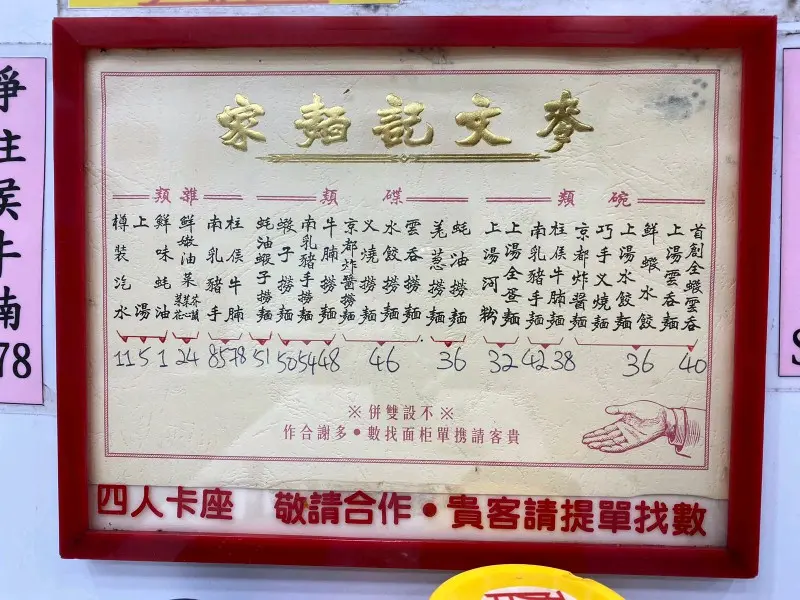 麥文記麵家
碗類
首創全蝦雲吞
40
上湯雲吞麵
鮮蝦水餃
上湯水餃麵
巧手叉燒麵
京都炸醬麵
36
柱侯牛腩麵
38
南乳豬手麵
42
上湯全蛋麵
上湯河粉
32
碟類
蚝油撈麵
羌葱撈麵
36
雲吞撈麵
水餃撈麵
叉燒撈麵
京都炸醬撈麵
46
牛腩撈麵
48
南乳豬手撈麵
54
蝦子撈麵
50
蚝油蝦子撈麵
51
雜類
柱侯牛腩
78
南乳豬手
85
鮮嫩油菜
芥蘭
菜心
24
鮮味蚝油
1
上湯
5
樽裝汽水
11
※不設雙併※
貴客請携單柜面找數•多謝合作
四人卡座 敬請合作•貴客請提單找數
淨柱侯牛腩
78